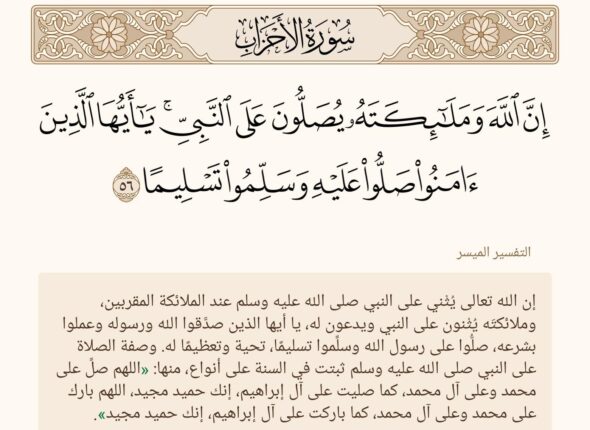 سُورَةُ الأَحْزَابِ
إِنَّ ٱللَّهَ وَمَلَـٰٓئِكَتَهُۥ يُصَلُّونَ عَلَى ٱلنَّبِىِّ ۚ يَـٰٓأَيُّهَا ٱلَّذِينَ
ءَامَنُوا۟ صَلُّوا۟ عَلَيْهِ وَسَلِّمُوا۟ تَسْلِيمًا ٥٦
التفسير الميسر
إن الله تعالى يُثني على النبي صلى الله عليه وسلم عند الملائكة المقربين،
وملائكته يُثنون على النبي ويدعون له، يا أيها الذين صدَّقوا الله ورسوله وعملوا
بشرعه، صلُّوا على رسول الله وسلِّموا تسليمًا، تحية وتعظيمًا له. وصفة الصلاة
على النبي صلى الله عليه وسلم ثبتت في السنة على أنواع، منها: «اللهم صلِّ على
محمد وعلى آل محمد، كما صليت على آل إبراهيم، إنك حميد مجيد، اللهم بارك
على محمد وعلى آل محمد، كما باركت على آل إبراهيم، إنك حميد مجيد».